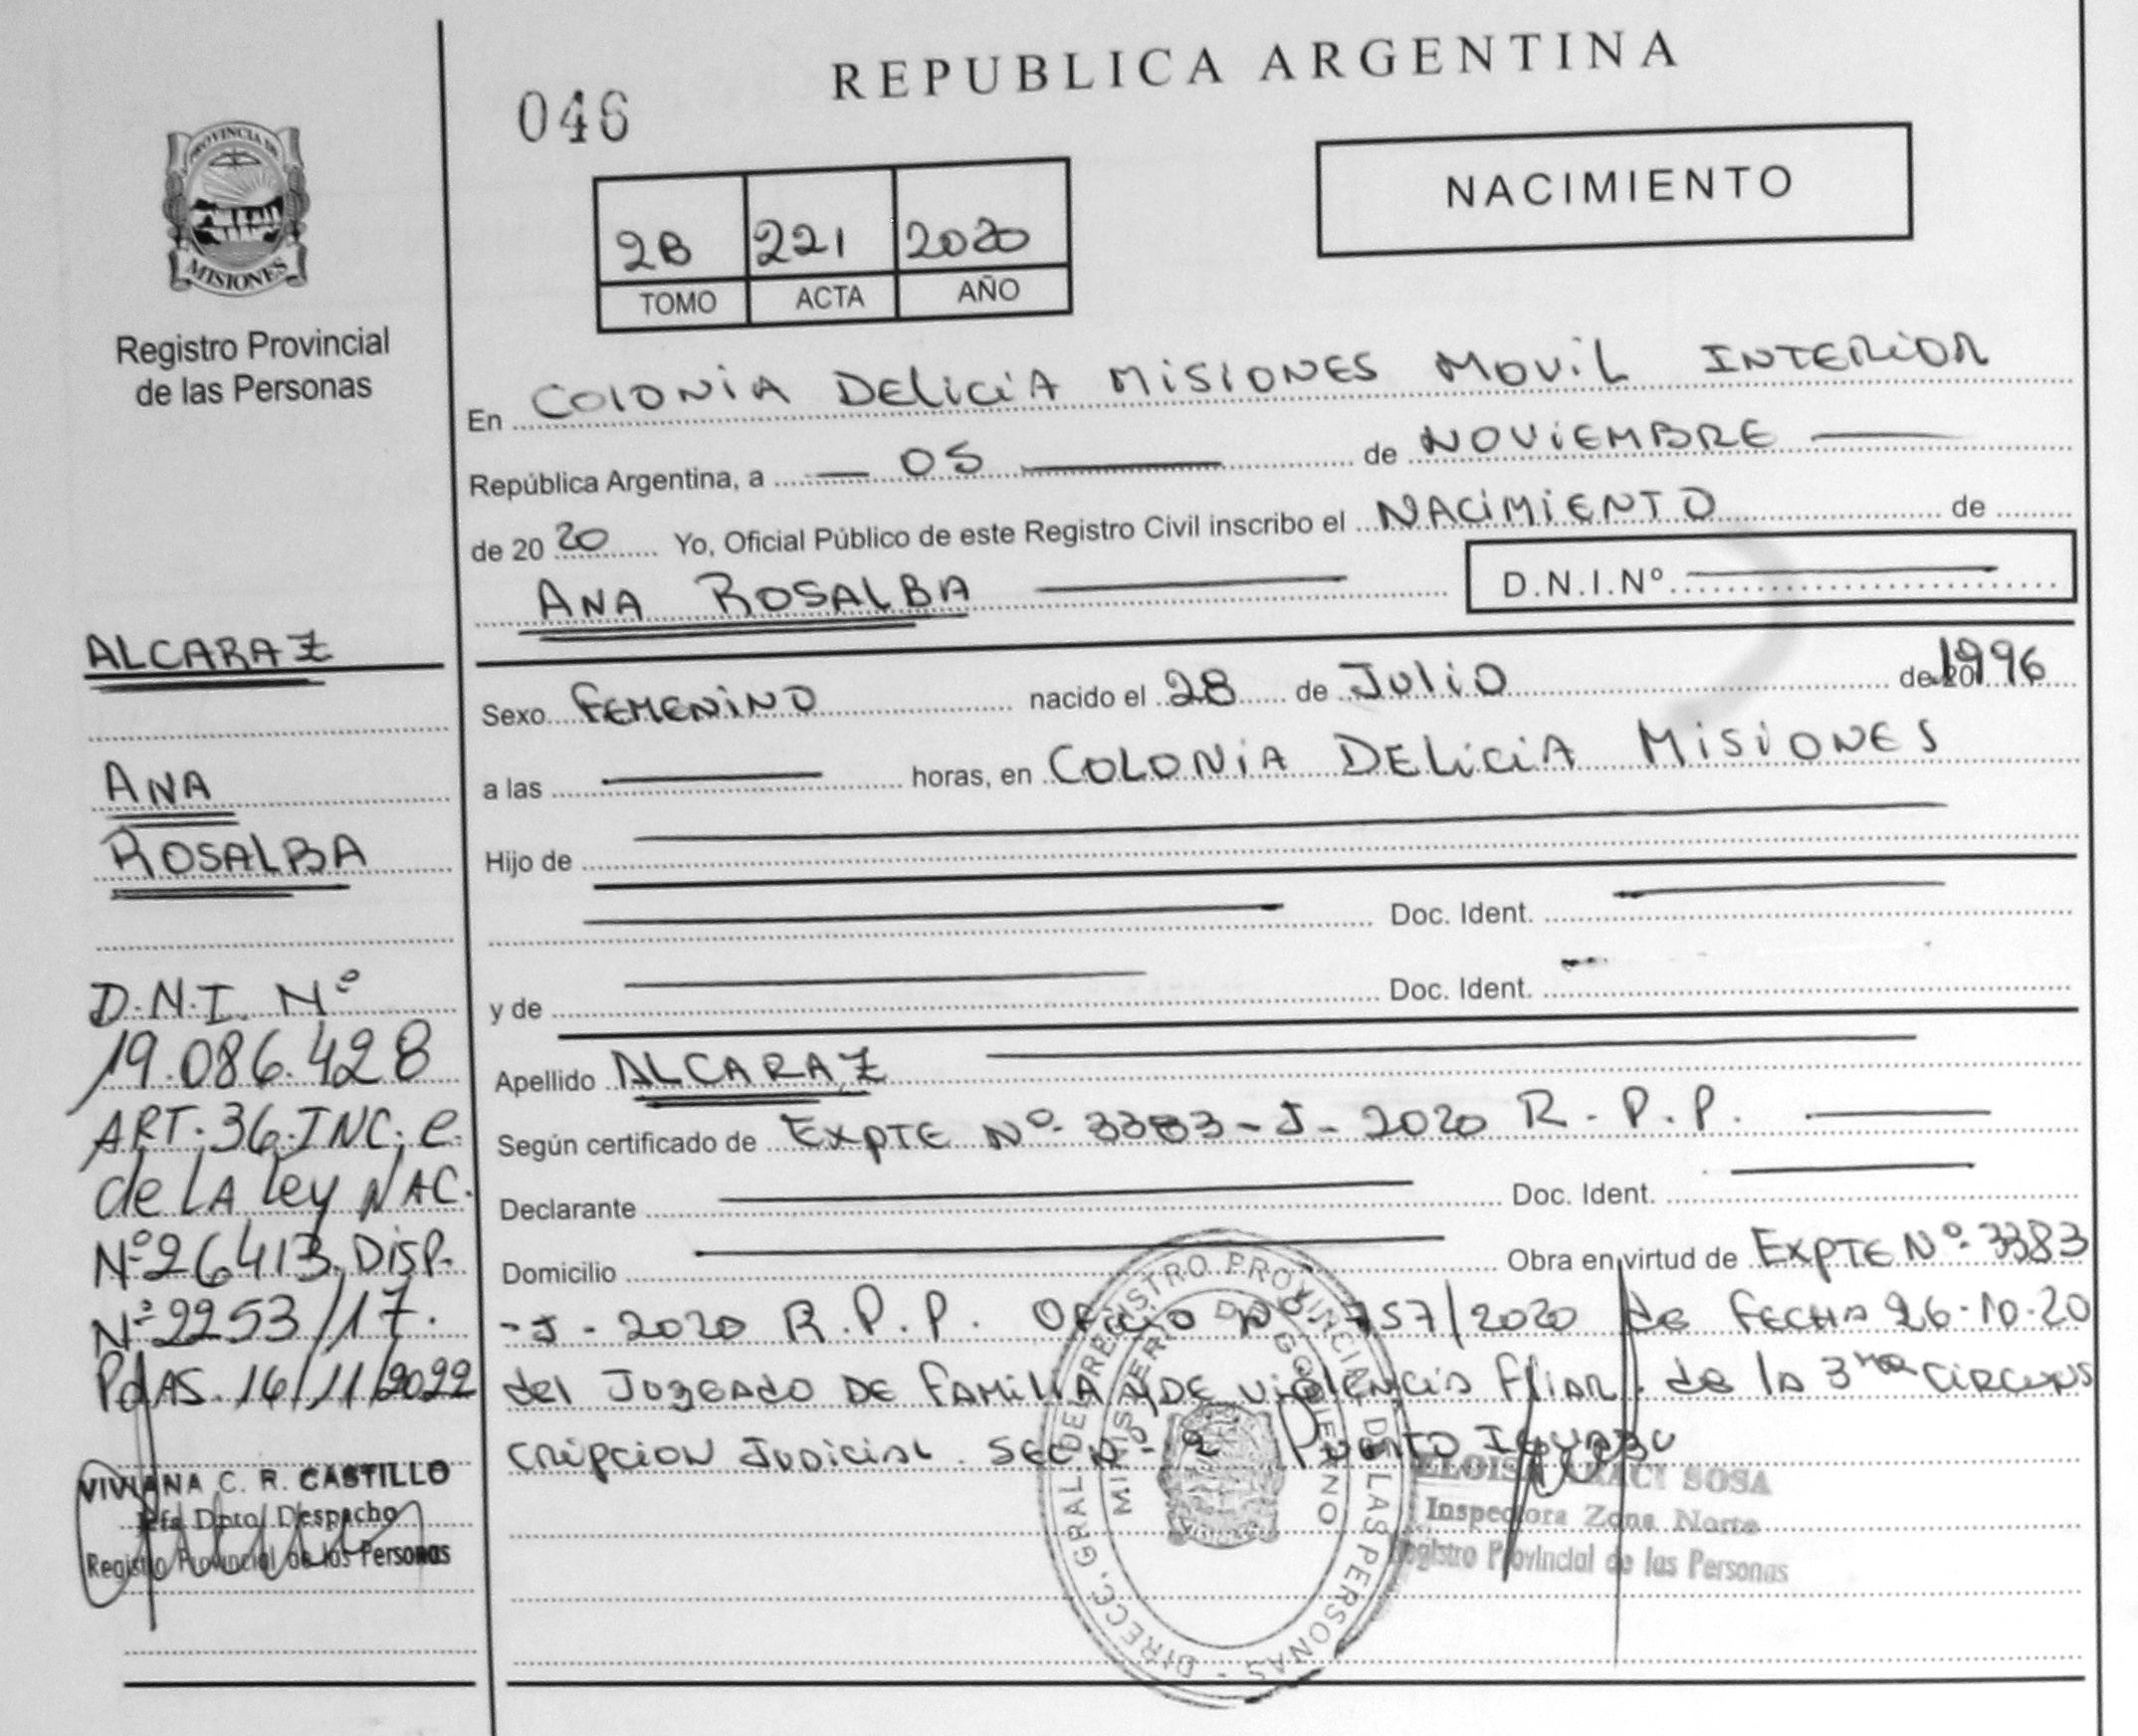 REPUBLICA ARGENTINA
046
NACIMIENTO
2B 221 2020
TOMO ACTA AÑO
PROVINCIA DE
MISIONES
Registro Provincial
de las Personas
En COLONIA DELICIA MISIONES MOVIL INTERIOR
República Argentina, a 05 de NOVIEMBRE
de 2020 Yo, Oficial Público de este Registro Civil inscribo el NACIMIENTO de
ANA ROSALBA D.N.I.Nº
Sexo FEMENINO nacido el 28 de JULIO de 1996
a las horas, en COLONIA DELICIA MISIONES
Hijo de
Doc. Ident.
y de Doc. Ident.
Apellido ALCARAZ
Según certificado de EXPTE Nº 3383-J-2020 R.P.P.
Declarante Doc. Ident.
Domicilio Obra en virtud de EXPTE Nº 3383
-J-2020 R.P.P. Oficio Nº 757/2020 de FECHA 26-10-20
del JUZGADO DE FAMILIA Y DE VIOLENCIA FLIAR. de la 3ra CIRCUNS
CRIPCION JUDICIAL. SEC Nº 2 PUERTO IGUAZU
ALCARAZ
ANA
ROSALBA
D.N.I. Nº
19.086.428
ART. 36. INC. e
de LA Ley NAC.
Nº 26413, DISP.
Nº 2253/17.
PdAS. 16/11/2022
VIVIANA C. R. CASTILLO
Jefa Dpto Despacho
Registro Provincial de las Personas
DIRECC. GRAL DEL REGISTRO PROVINCIAL DE LAS PERSONAS
MINISTERIO DE GOBIERNO
ELOISA ARACI SOSA
Inspectora Zona Norte
Registro Provincial de las Personas